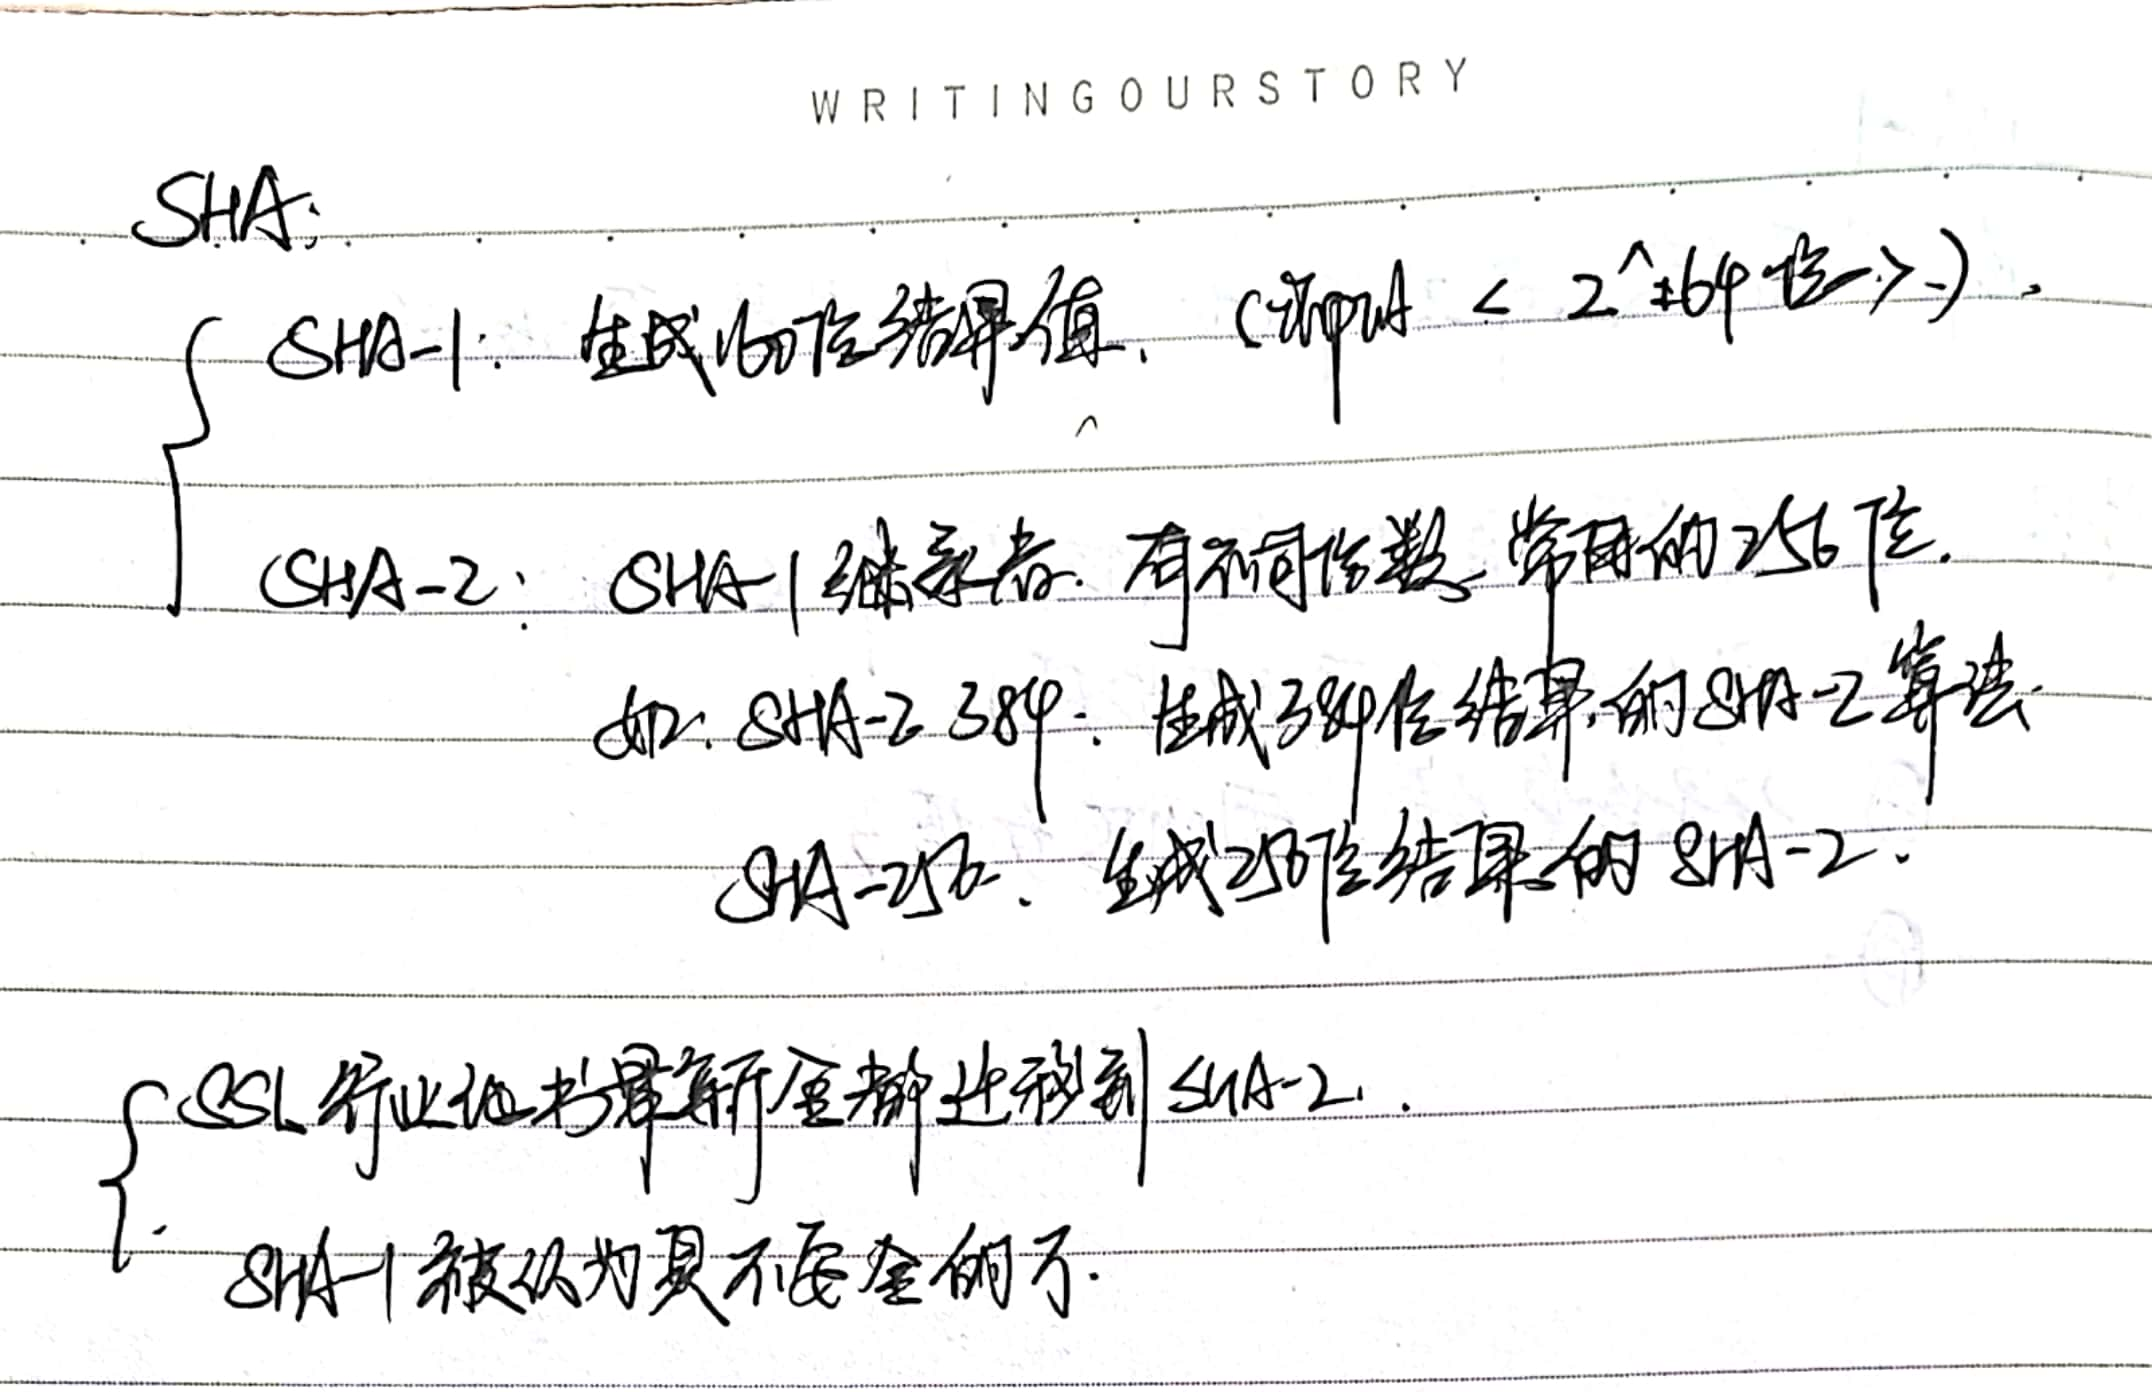 WRITINGOURSTORY
SHA:
SHA-1: 生成160位结果值. (input < 2^64位)
SHA-2: SHA-1继承者. 有不同位数 常用的256位.
如: SHA-2 384: 生成384位结果的SHA-2算法.
SHA-256. 生成256位结果的SHA-2.
SSL行业 书最新全都迁移到SHA-2.
SHA-1被认为是不安全的了.